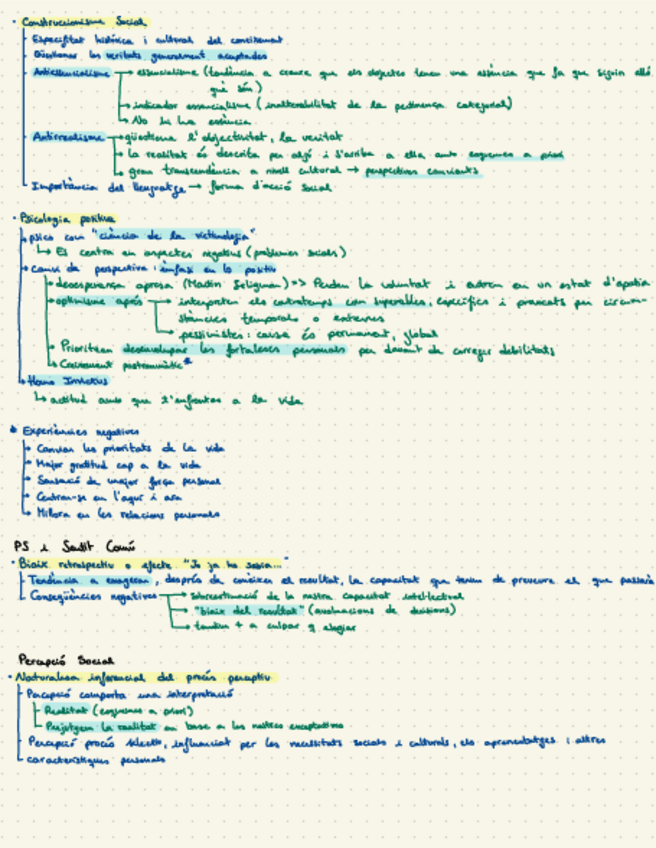 · Construccionisme Social
Especifitat històrica i cultural del coneixement
Qüestionar les veritats generalment acceptades
Antiessencialisme → essencialisme (tendència a creure que els objectes tenen una essència que fa que siguin allò
què són)
→ indicador essencialisme (inalterabilitat de la pertinença categorial)
→ No hi ha essència
Antirrealisme → qüestiona l'objectivitat, la veritat
→ la realitat és descrita per algú i s'arriba a ella amb esquemes a priori
→ gran transcendència a nivell cultural → perspectives canviants
Importància del llenguatge → forma d'acció social
· Psicologia positiva
psico com "ciència de la victimologia"
↳ Es centra en aspectes negatius (problemes socials)
canvi de perspectiva: èmfasi en lo positiu
desesperança apresa (Martin Seligman) => Perden la voluntat i entren en un estat d'apatia
optimisme après → interpreten els contratemps com superables, específics i provocats per circum-
stàncies temporals o externes
→ pessimistes: causa és permanent, global
Prioritzen desenvolupar les fortaleses personals per davant de corregir debilitats
Creixement postraumàtic*
Homo Invictus
↳ actitud amb que t'enfrontes a la vida
* Experiències negatives
Canvien les prioritats de la vida
Major gratitud cap a la vida
Sensació de major força personal
Centrar-se en l'aquí i ara
Millora en les relacions personals
PS i Sentit Comú
· Biaix retrospectiu o efecte "Jo ja ho sabia..."
Tendència a exagerar, després de conèixer el resultat, la capacitat que teniem de preveure el que passaria
Conseqüències negatives → sobreestimació de la nostra capacitat intel·lectual
→ "biaix del resultat" (avaluacions de decisions)
→ tendim + a culpar q elogiar
Percepció Social
· Naturalesa inferencial del procés perceptiu
Percepció comporta una interpretació
Realitat (esquemes a priori)
Projectem la realitat en base a les nostres expectatives
Percepció procés selectiu, influenciat per les necessitats socials i culturals, els aprenentatges i altres
característiques personals